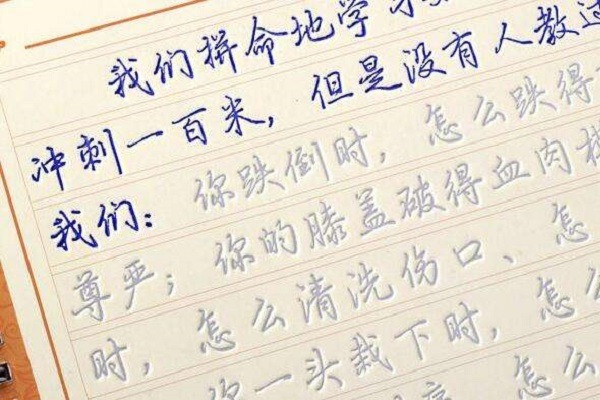 我们拼命地学习如
冲刺一百米，但是没有人教过
我们：你跌倒时，怎么跌得
尊严；你的膝盖破得血肉模
时，怎么清洗伤口、怎
你一头栽下时，怎么
怎么